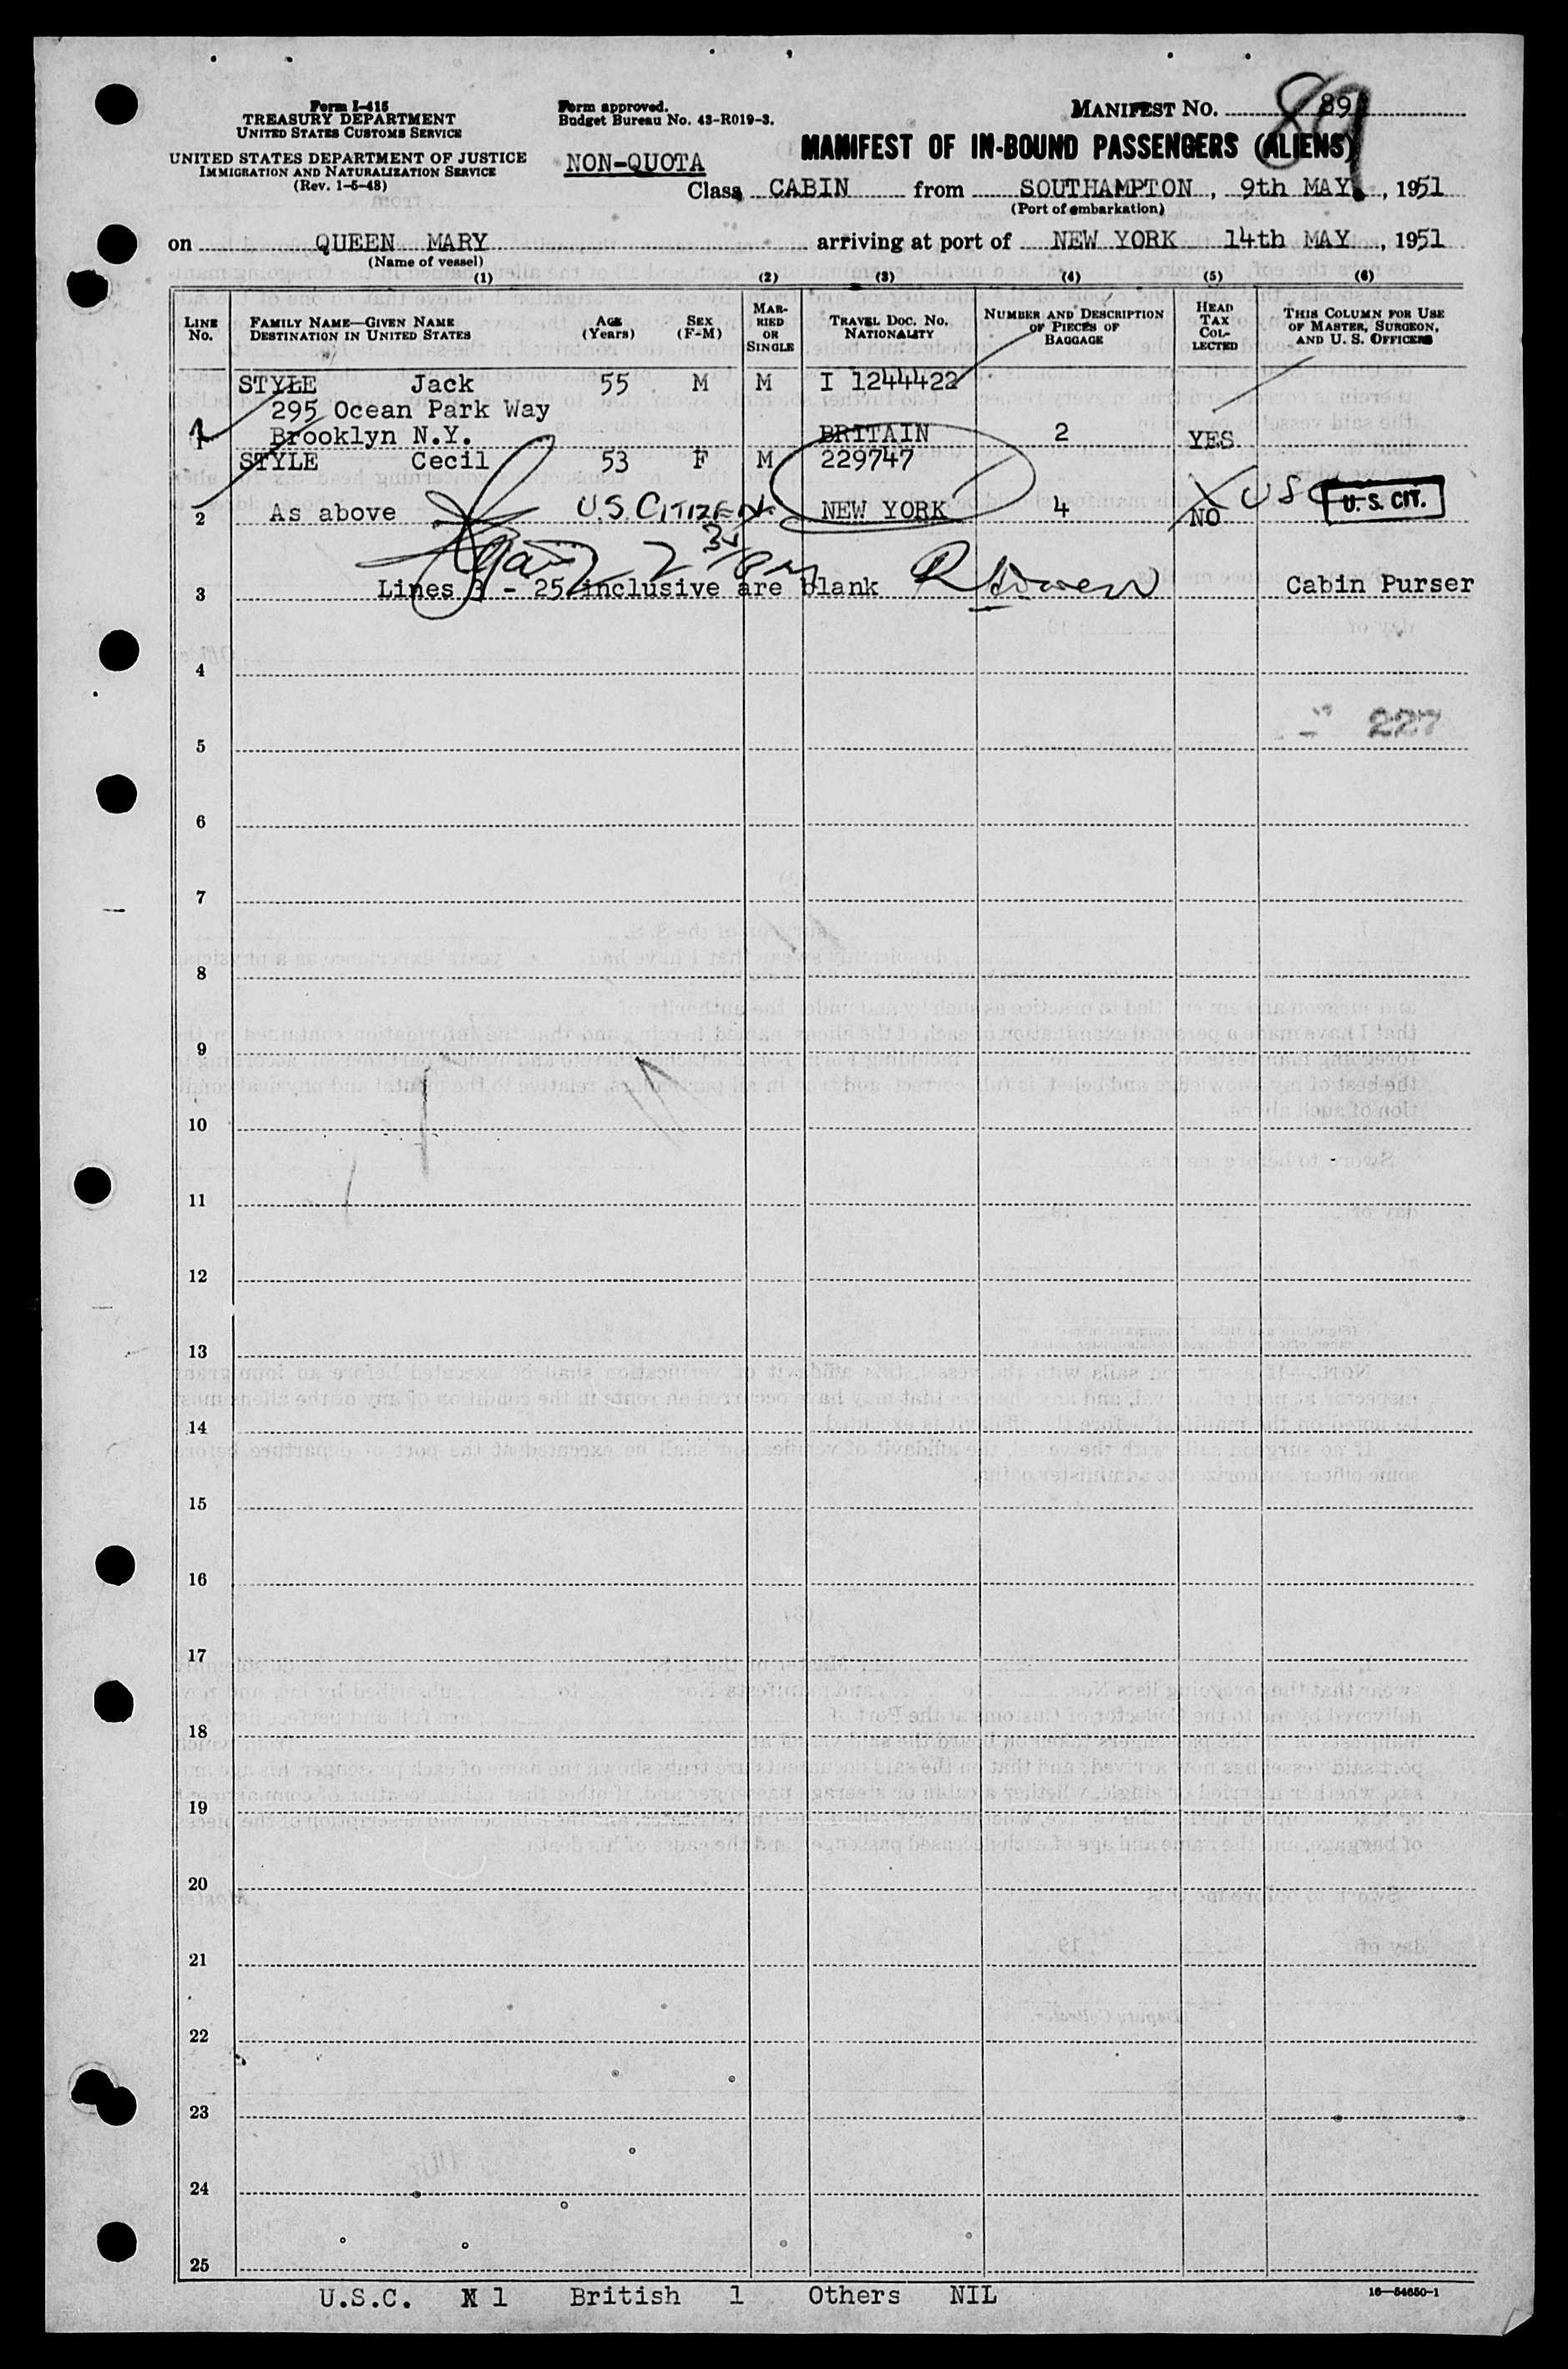 Form I-415
TREASURY DEPARTMENT
UNITED STATES CUSTOMS SERVICE
UNITED STATES DEPARTMENT OF JUSTICE
IMMIGRATION AND NATURALIZATION SERVICE
(Rev. 1-5-48)
Form approved.
Budget Bureau No. 43-R019-3.
NON-QUOTA
MANIFEST NO. 89
89
MANIFEST OF IN-BOUND PASSENGERS (ALIENS)
Class CABIN from SOUTHAMPTON, 9th MAY, 1951
(Port of embarkation)
on QUEEN MARY arriving at port of NEW YORK 14th MAY, 1951
(Name of vessel)
(1) (2) (3) (4) (5) (6)
LINE No.
FAMILY NAME—GIVEN NAME DESTINATION IN UNITED STATES
AGE (Years)
SEX (F-M)
MARRIED OR SINGLE
TRAVEL DOC. NO. NATIONALITY
NUMBER AND DESCRIPTION OF PIECES OF BAGGAGE
HEAD TAX COLLECTED
THIS COLUMN FOR USE OF MASTER, SURGEON, AND U. S. OFFICERS
STYLE Jack 55 M M I 1244422
295 Ocean Park Way
1 Brooklyn N.Y. BRITAIN 2 YES
STYLE Cecil 53 F M 229747
2 As above U.S. CITIZEN NEW YORK 4 NO USC U. S. CIT.
3 Lines 3 - 25 inclusive are blank Cabin Purser
4
5 227
6
7
8
9
10
11
12
13
14
15
16
17
18
19
20
21
22
23
24
25
U.S.C. 1 British 1 Others NIL
16—54650-1